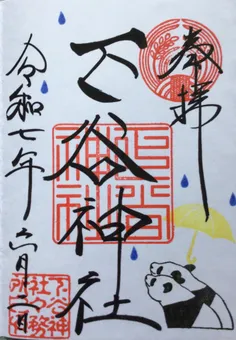 奉拝
下谷神社
令和七年六月十二日
下谷神社
下谷神社社務所之印